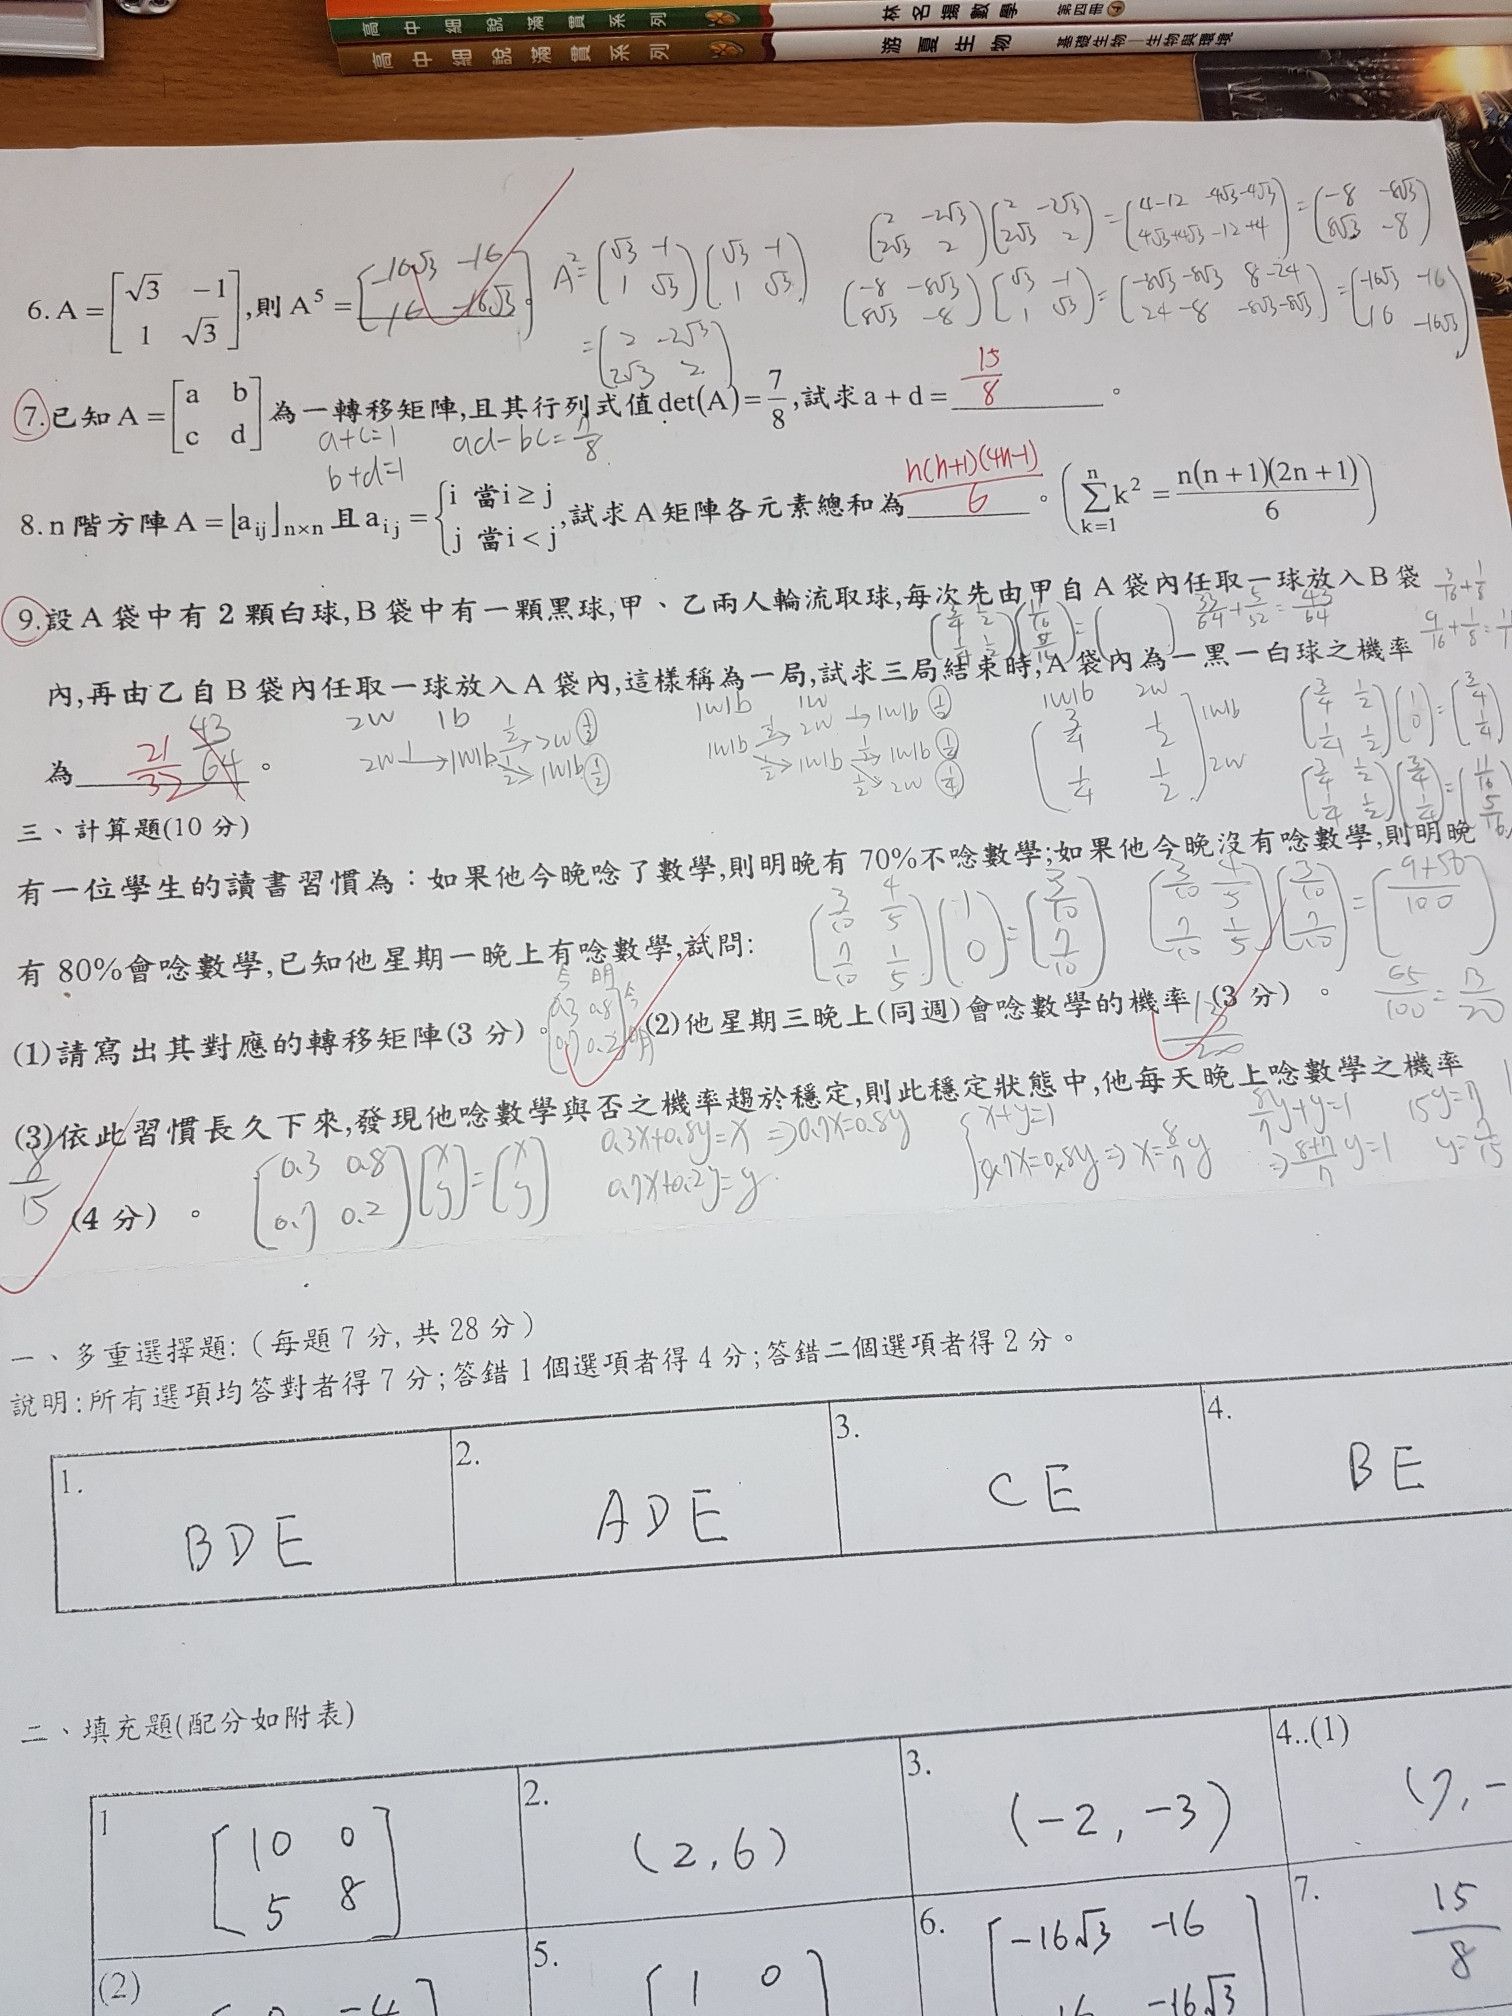 高中細說滿貫系列 林名揚數學 第四冊
高中細說滿貫系列 游夏生物 基礎生物—生物與環境
6. A = [√3 −1; 1 √3], 則 A⁵ = [−16√3 −16; 16 −16√3]。
A² = (√3 −1; 1 √3)(√3 −1; 1 √3)
= (2 −2√3; 2√3 2)
(2 −2√3; 2√3 2)(2 −2√3; 2√3 2) = (4−12 −4√3−4√3; 4√3+4√3 −12+4) = (−8 −8√3; 8√3 −8)
(−8 −8√3; 8√3 −8)(√3 −1; 1 √3) = (−8√3−8√3 8−24; 24−8 −8√3−8√3) = (−16√3 −16; 16 −16√3)
7. 已知 A = [a b; c d] 為一轉移矩陣, 且其行列式值 det(A) = 7/8, 試求 a + d = 15/8 。
a+c=1 ad−bc=7/8
b+d=1
8. n 階方陣 A = [aij]n×n 且 aij = {i 當 i ≥ j; j 當 i < j, 試求 A 矩陣各元素總和為 n(n+1)(4n−1)/6 。 (Σ k=1 n k² = n(n+1)(2n+1)/6)
9. 設 A 袋中有 2 顆白球, B 袋中有一顆黑球, 甲、乙兩人輪流取球, 每次先由甲自 A 袋內任取一球放入 B 袋
內, 再由乙自 B 袋內任取一球放入 A 袋內, 這樣稱為一局, 試求三局結束時, A 袋內為一黑一白球之機率
為 21/32 43/64 。
33/64 + 5/32 = 43/64
9/16 + 1/8 =
2w 1b
2w 1→ 1w1b 1/2→ 2w (1/2)
1/2→ 1w1b (1/2)
1w1b 1w
1w1b 1/2→ 2w 1→ 1w1b (1/2)
1/2→ 1w1b 1/2→ 1w1b (1/4)
1/2→ 2w (1/4)
1w1b 2w
(3/4 1/2; 1/4 1/2) 1w1b 2w
(3/4 1/2; 1/4 1/2)(1; 0) = (3/4; 1/4)
(3/4 1/2; 1/4 1/2)(3/4; 1/4) = (11/16; 5/16)
三、計算題(10 分)
有一位學生的讀書習慣為：如果他今晚唸了數學, 則明晚有 70%不唸數學; 如果他今晚沒有唸數學, 則明晚
有 80%會唸數學, 已知他星期一晚上有唸數學, 試問:
(3/10 4/5; 7/10 1/5)(1; 0) = (3/10; 7/10)
(3/10 4/5; 7/10 1/5)(3/10; 7/10) = (9+56/100
65/100 = 13/20
(1)請寫出其對應的轉移矩陣(3 分)。 (2)他星期三晚上(同週)會唸數學的機率 (3 分) 。
今 明
0.3 0.8 今
0.7 0.2 明
13/20
(3)依此習慣長久下來, 發現他唸數學與否之機率趨於穩定, 則此穩定狀態中, 他每天晚上唸數學之機率
8/15
(4 分) 。
(0.3 0.8; 0.7 0.2)(x; y) = (x; y)
0.3x+0.8y=x ⇒0.7x=0.8y
0.7x+0.2y=y
{x+y=1
0.7x=0.8y ⇒ x=8/7 y
8/7 y+y=1
⇒ 8+7/7 y=1
15y=7
y=7/15
一、多重選擇題:（每題 7 分, 共 28 分）
說明:所有選項均答對者得 7 分;答錯 1 個選項者得 4 分;答錯二個選項者得 2 分。
1. BDE
2. ADE
3. CE
4. BE
二、填充題(配分如附表)
1 [10 0; 5 8]
2. (2, 6)
3. (−2, −3)
4..(1) (7, −
(2)
−4
5. [1 0
6. [−16√3 −16; 16 −16√3]
7. 15/8